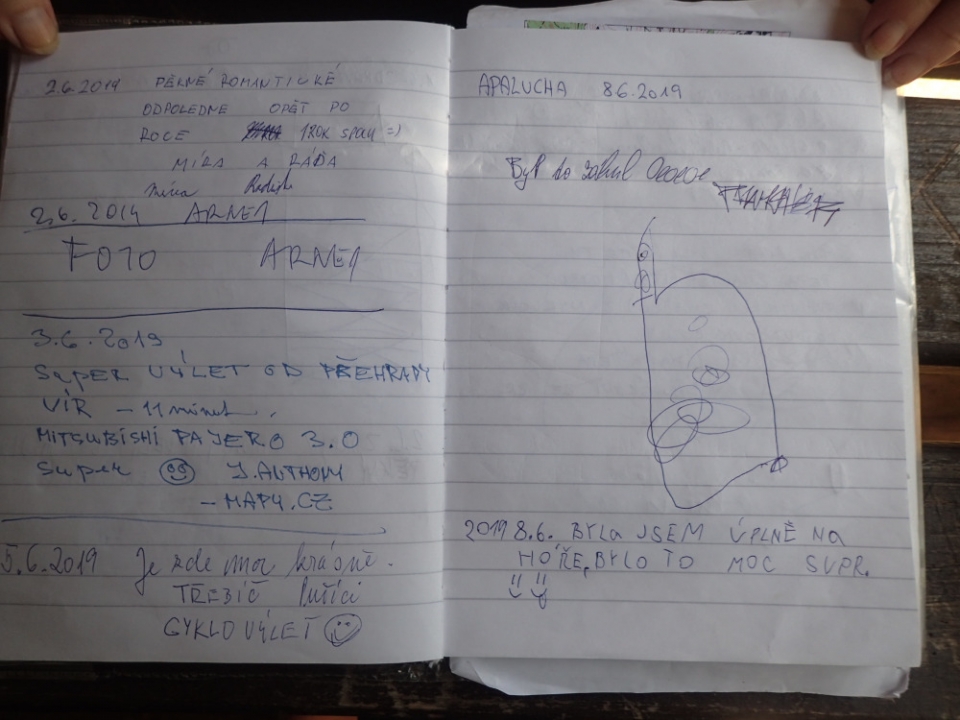 2.6.2019 PĚKNÉ ROMANTICKÉ
ODPOLEDNE OPĚT PO
ROCE 1 ROK SPOLU =)
MÍRA A RÁĎA
Míra
2.6.2019 ARNEA
FOTO ARNEA
3.6.2019
SUPER VÝLET OD PŘEHRADY
VÍR – 11 minut.
MITSUBISHI PAJERO 3.0
SUPER J. ANTHONY
– MAPY.CZ
5.6.2019 Je zde moc krásně.
TŘEBÍČ
CYKLOVÝLET
APALUCHA 8.6.2019
Byl to
2019 8.6. BYLA JSEM ÚPLNĚ NA
HOŘE, BYLO TO MOC SUPR.